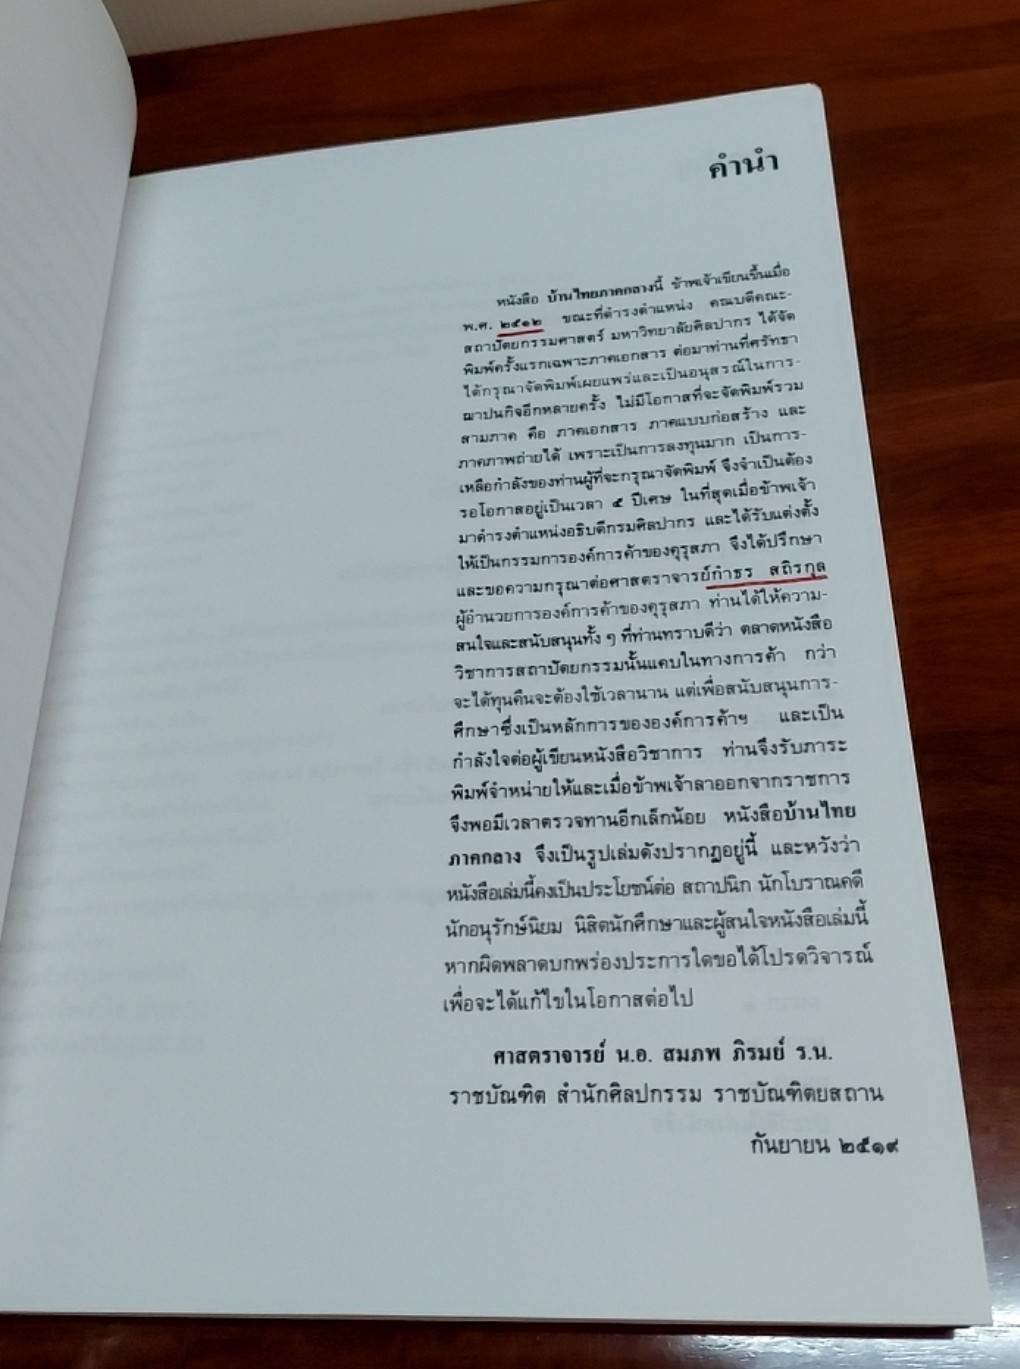 คำนำ
หนังสือ บ้านไทยภาคกลางนี้ ข้าพเจ้าเขียนขึ้นเมื่อ
พ.ศ. ๒๕๑๒ ขณะที่ดำรงตำแหน่ง คณบดีคณะ-
สถาปัตยกรรมศาสตร์ มหาวิทยาลัยศิลปากร ได้จัด
พิมพ์ครั้งแรกเฉพาะภาคเอกสาร ต่อมาท่านที่ศรัทธา
ได้กรุณาจัดพิมพ์เผยแพร่และเป็นอนุสรณ์ในการ-
ฌาปนกิจอีกหลายครั้ง ไม่มีโอกาสที่จะจัดพิมพ์รวม
สามภาค คือ ภาคเอกสาร ภาคแบบก่อสร้าง และ
ภาคภาพถ่ายได้ เพราะเป็นการลงทุนมาก เป็นการ-
เหลือกำลังของท่านผู้ที่จะกรุณาจัดพิมพ์ จึงจำเป็นต้อง
รอโอกาสอยู่เป็นเวลา ๕ ปีเศษ ในที่สุดเมื่อข้าพเจ้า
มาดำรงตำแหน่งอธิบดีกรมศิลปากร และได้รับแต่งตั้ง
ให้เป็นกรรมการองค์การค้าของคุรุสภา จึงได้ปรึกษา
และขอความกรุณาต่อศาสตราจารย์กำธร สถิรกุล
ผู้อำนวยการองค์การค้าของคุรุสภา ท่านได้ให้ความ-
สนใจและสนับสนุนทั้ง ๆ ที่ท่านทราบดีว่า ตลาดหนังสือ
วิชาการสถาปัตยกรรมนั้นแคบในทางการค้า กว่า
จะได้ทุนคืนจะต้องใช้เวลานาน แต่เพื่อสนับสนุนการ-
ศึกษาซึ่งเป็นหลักการขององค์การค้าฯ และเป็น
กำลังใจต่อผู้เขียนหนังสือวิชาการ ท่านจึงรับภาระ
พิมพ์จำหน่ายให้และเมื่อข้าพเจ้าลาออกจากราชการ
จึงพอมีเวลาตรวจทานอีกเล็กน้อย หนังสือบ้านไทย
ภาคกลาง จึงเป็นรูปเล่มดังปรากฏอยู่นี้ และหวังว่า
หนังสือเล่มนี้คงเป็นประโยชน์ต่อ สถาปนิก นักโบราณคดี
นักอนุรักษ์นิยม นิสิตนักศึกษาและผู้สนใจหนังสือเล่มนี้
หากผิดพลาดบกพร่องประการใดขอได้โปรดวิจารณ์
เพื่อจะได้แก้ไขในโอกาสต่อไป
ศาสตราจารย์ น.อ. สมภพ ภิรมย์ ร.น.
ราชบัณฑิต สำนักศิลปกรรม ราชบัณฑิตยสถาน
กันยายน ๒๕๑๙